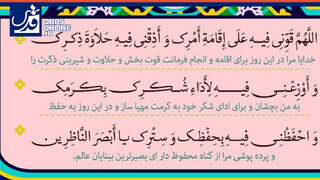 قدس
QUDS
ONLINE
.IR
اللَّهُمَّ قَوِّنِي فِيهِ عَلَى إِقَامَةِ أَمْرِكَ وَ أَذِقْنِي فِيهِ حَلاَوَةَ ذِكْرِكَ
خدایا مرا در این روز برای اقامه و انجام فرمانت قوت بخش و حلاوت و شیرینی ذکرت را
وَ أَوْزِعْنِي فِيهِ لِأَدَاءِ شُكْرِكَ بِكَرَمِكَ
به من بچشان و برای ادای شکر خود به کرمت مهیا ساز و در این روز به حفظ
وَ احْفَظْنِي فِيهِ بِحِفْظِكَ وَ سِتْرِكَ يَا أَبْصَرَ النَّاظِرِينَ
و پرده پوشی مرا از گناه محفوظ دار ای بصیرترین بینایان عالم.